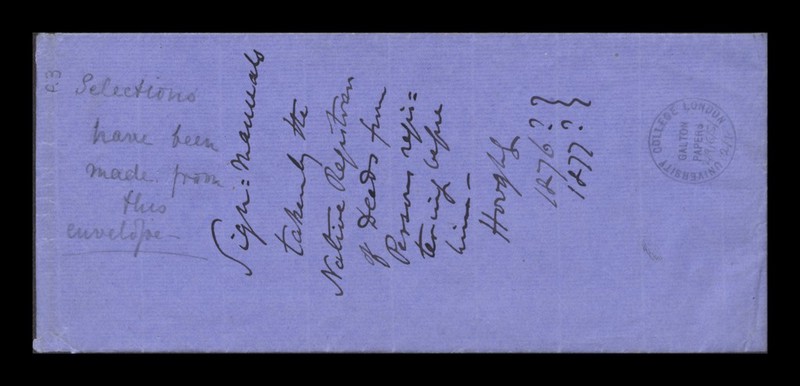 Selections
have been
made from
this
envelope—
Sign=Manuals
taken by the
Native Registrar
of Deeds from
Persons regis=
tering before
him—
Hooghly
1876?}
1877?}
UNIVERSITY COLLEGE LONDON
GALTON
PAPERS